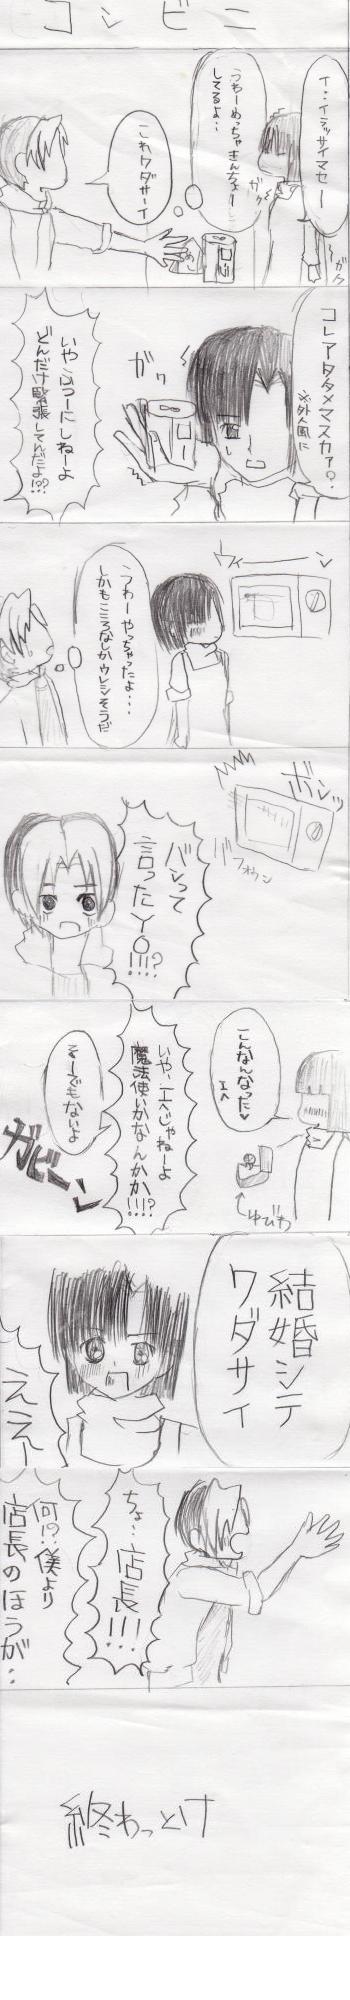 コンビニ
イ…イラッサイマセー
うわーめっちゃきんちょー
してるよ…
これクダサーイ
ガク
ガク
コレアタタメマスカァ?
※外人風に
ガッ
いやふつーにしねーよ
どんだけ緊張してんだよ!!?
ウィーーン
うわーやっちゃったよ…
しかもこころなしかウレシそうだ
ボンッ
バフォウン
バンって
言ったYO
!!!?
こんなんなった♥
エヘ
ゆびわ
いや、エヘじゃねーよ
魔法使いかなんかか!!!?
そーでもないよ
ガビーン
結婚シテ
クダサイ
ええー
ちょ…店長!!!
何!?僕より
店長のほうが…
終わっとけ